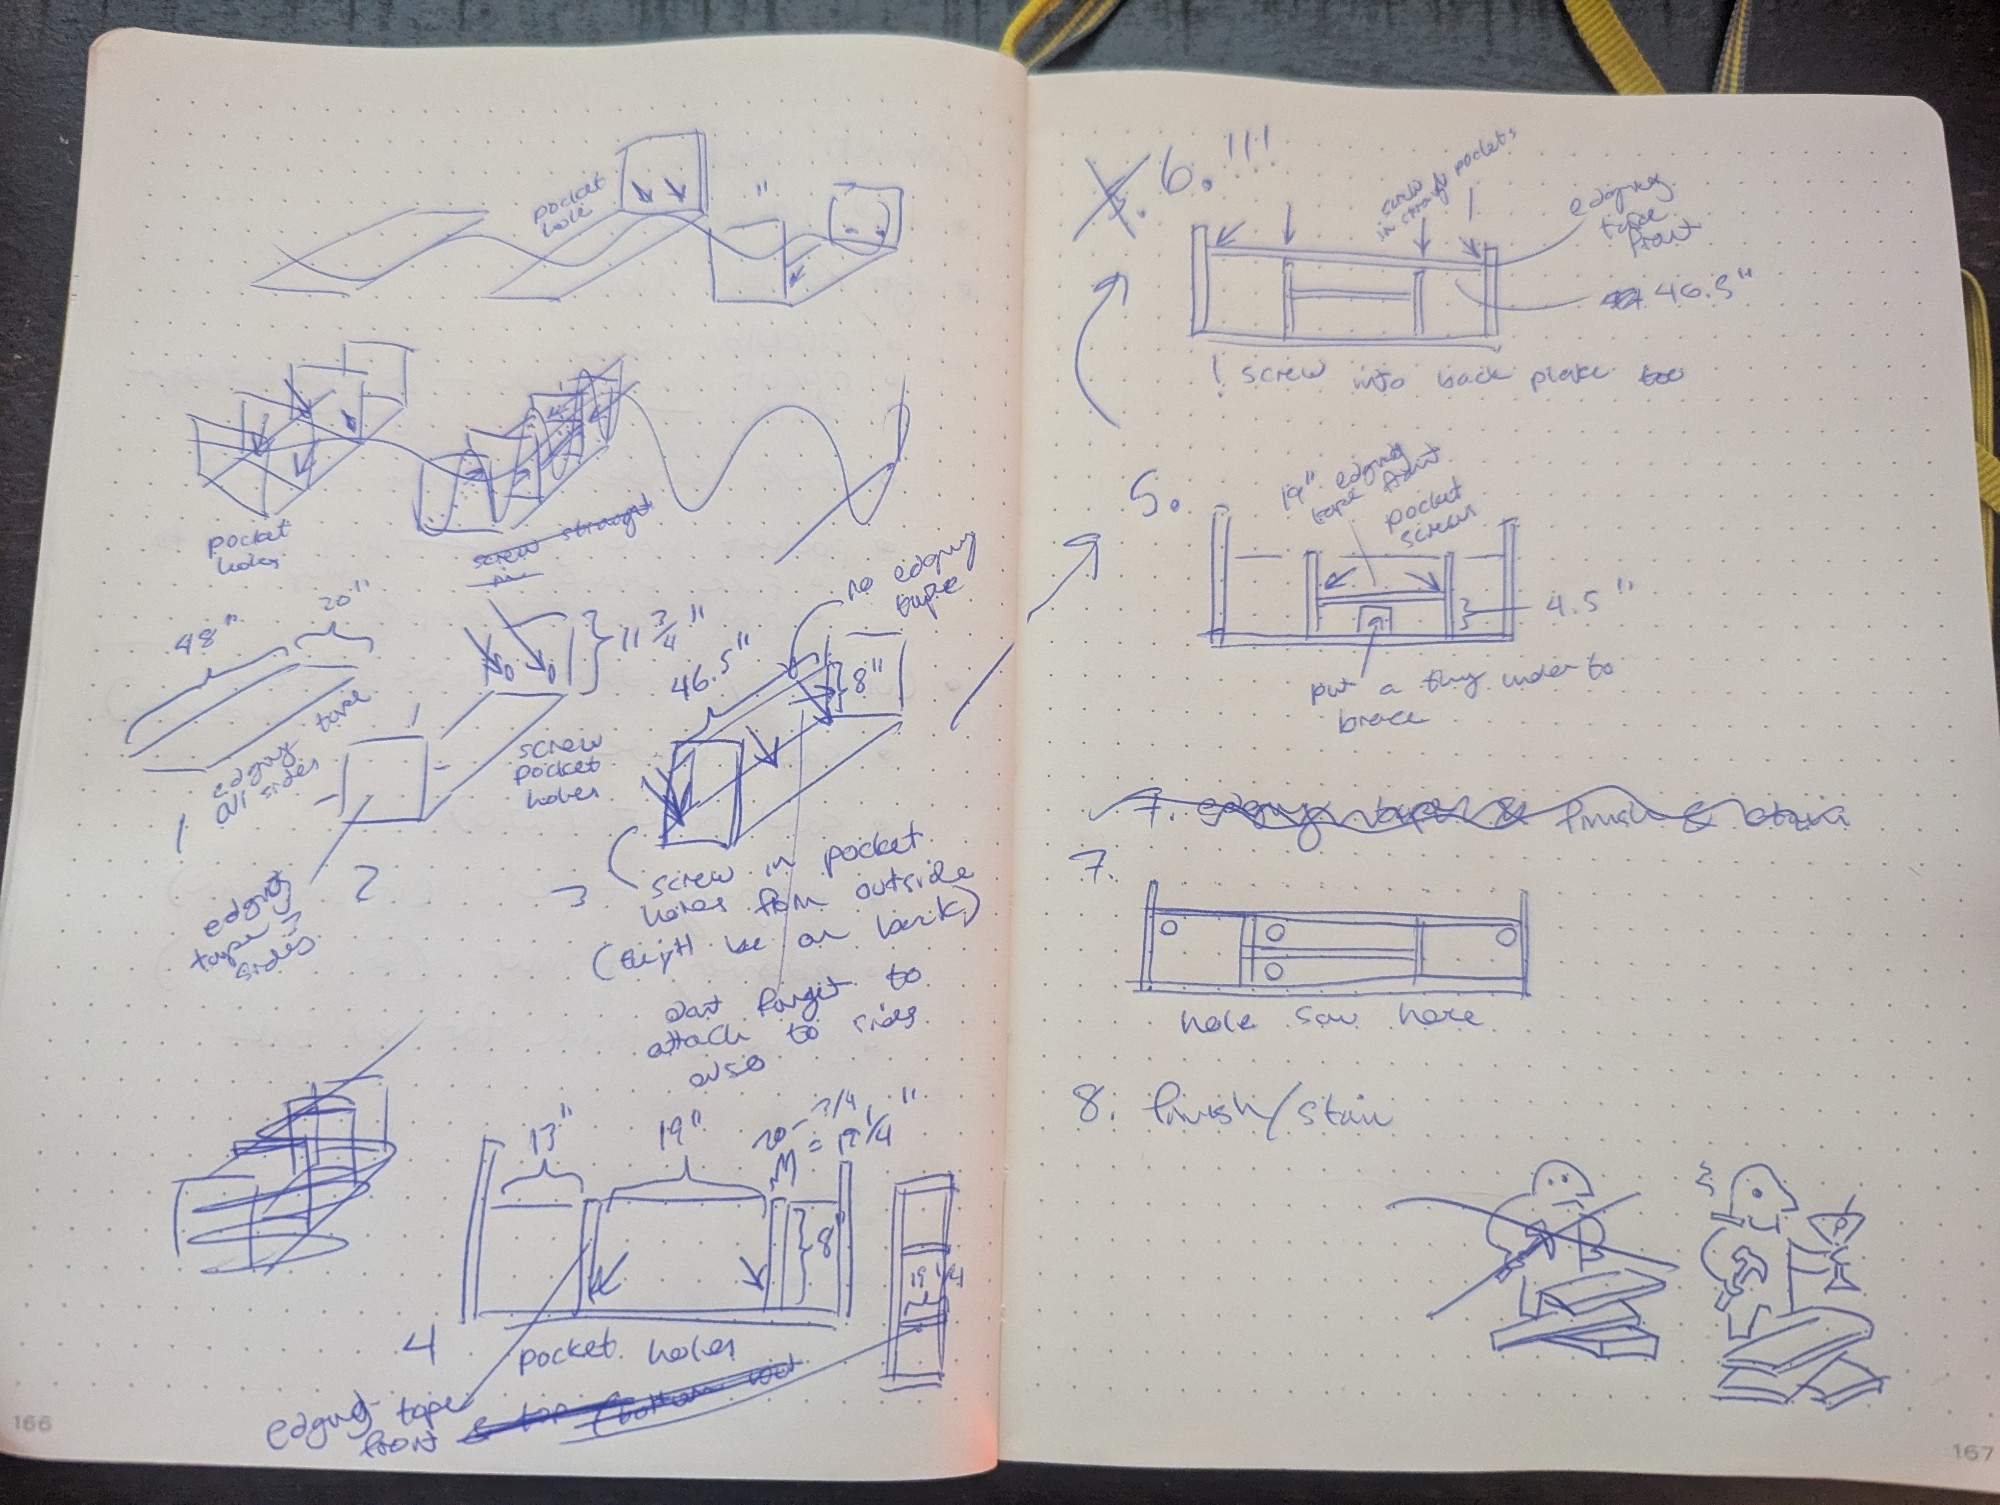 pocket
hole
"
pocket
holes
screw straight
in
48"
20"
edging tape
all sides
1
11 3/4"
screw
pocket
holes
edging
tape 3
sides
2
no edging
tape
46.5"
8"
3
screw in pocket
holes from outside
(they'll be on back)
dont forget to
attach
also to sides
13"
19"
20 - 3/4"
= 19 1/4"
8"
19 1/4
4
pocket holes
edging tape
front
166
6. !!!
screw
in straight pockets
edging
tape
front
46.5"
! screw into back plate too
5.
19" edging
tape front
pocket
screws
4.5"
put a thing under to
brace
7. edging tape & finish & stain
7.
hole saw here
8. finish/stain
167